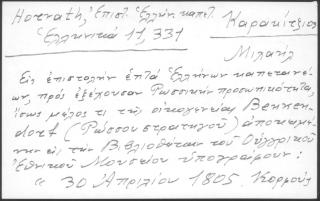 Horváth, Ἐπιστ. Ἑλλήν. καπετ.
Καρακίτζιος
Ἑλληνικά 11, 331
Μιχαήλ
Εἰς ἐπιστολήν ἑπτά Ἑλλήνων καπεταναί-
ων, πρός ἐξέχουσαν Ρωσσικήν προσωπικότητα,
ἴσως μέλος τι τῆς οἰκογενείας Benken-
dorf (Ρώσσου στρατηγοῦ) ἀποκειμέ-
νην εἰς τήν Βιβλιοθήκην τοῦ Οὑγγρικοῦ
Ἐθνικοῦ Μουσείου ὑπογράφουν:
« 30 Ἀπριλίου 1805. Κορφούς